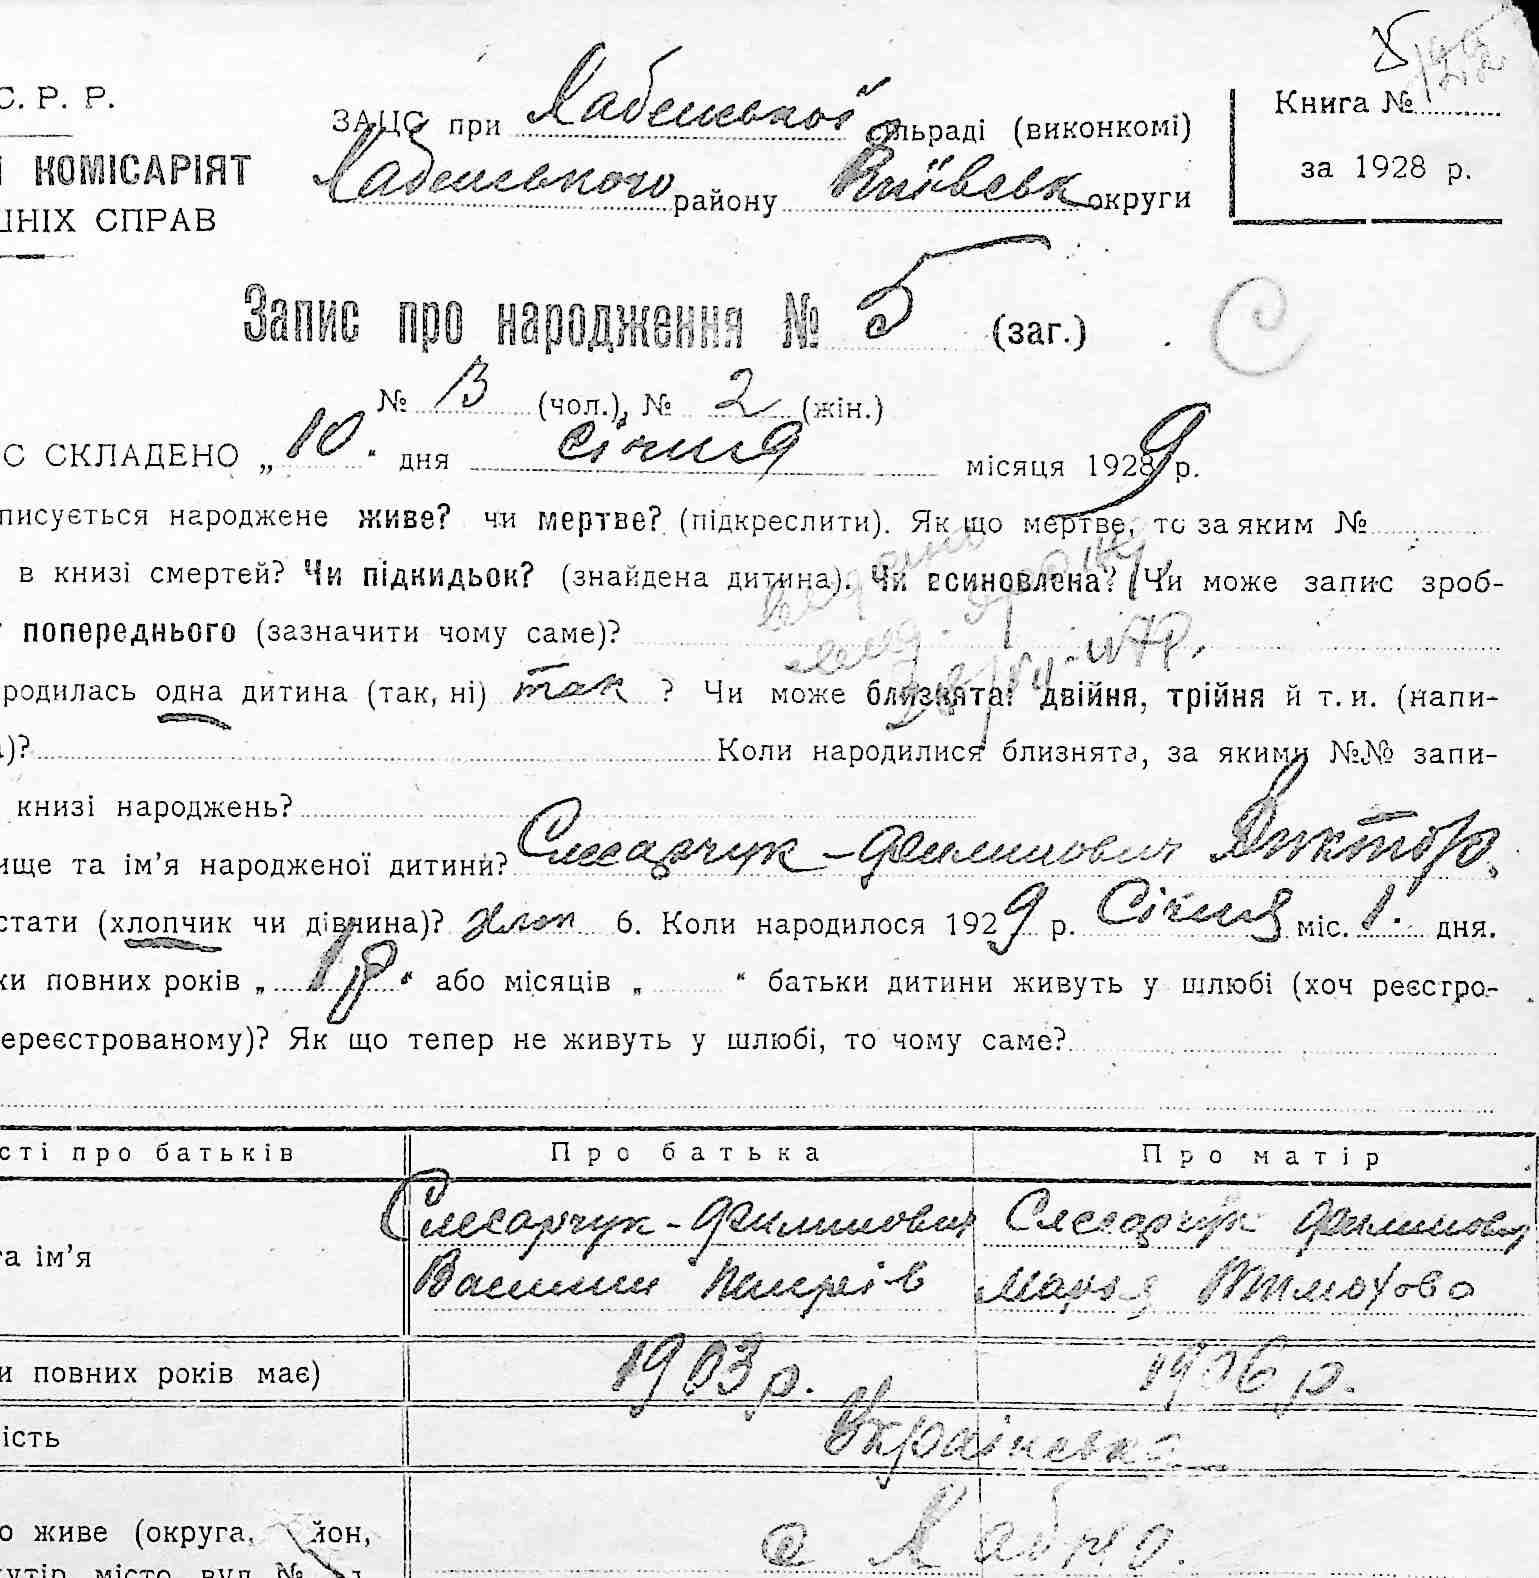 С. Р. Р.
ЗАЦС при Хабенської сільраді (виконкомі)
Книга №
КОМІСАРІЯТ
Хабенського району Київськ округи
за 1928 р.
ШНІХ СПРАВ
Запис про народження № 5 (заг.)
С
№ 3 (чол.), № 2 (жін.)
С СКЛАДЕНО „ 10 “ дня січня місяця 1929 р.
писується народжене живе? чи мертве? (підкреслити). Як що мертве, то за яким №
в книзі смертей? Чи підкидьок? (знайдена дитина). Чи всиновлена? Чи може запис зроб-
попереднього (зазначити чому саме)?
родилась одна дитина (так, ні) так ? Чи може близнята: двійня, трійня й т. и. (напи-
)? Коли народилися близнята, за якими №№ запи-
книзі народжень?
ище та ім’я народженої дитини? Слесарчук-Филипович Виктор.
стати (хлопчик чи дівчина)? хлоп 6. Коли народилося 1929 р. Січня міс. 1. дня.
ки повних років „ “ або місяців „ “ батьки дитини живуть у шлюбі (хоч реєстро-
ереєстрованому)? Як що тепер не живуть у шлюбі, то чому саме?
сті про батьків Про батька Про матір
Слесарчук-Филипович Слесарчук Филипович
та ім’я
Василий Марья Тимохова
1903 р. 1906 р.
и повних років має)
Українська
ість
с Хабно.
о живе (округа, район,
хутір, місто, вул. №